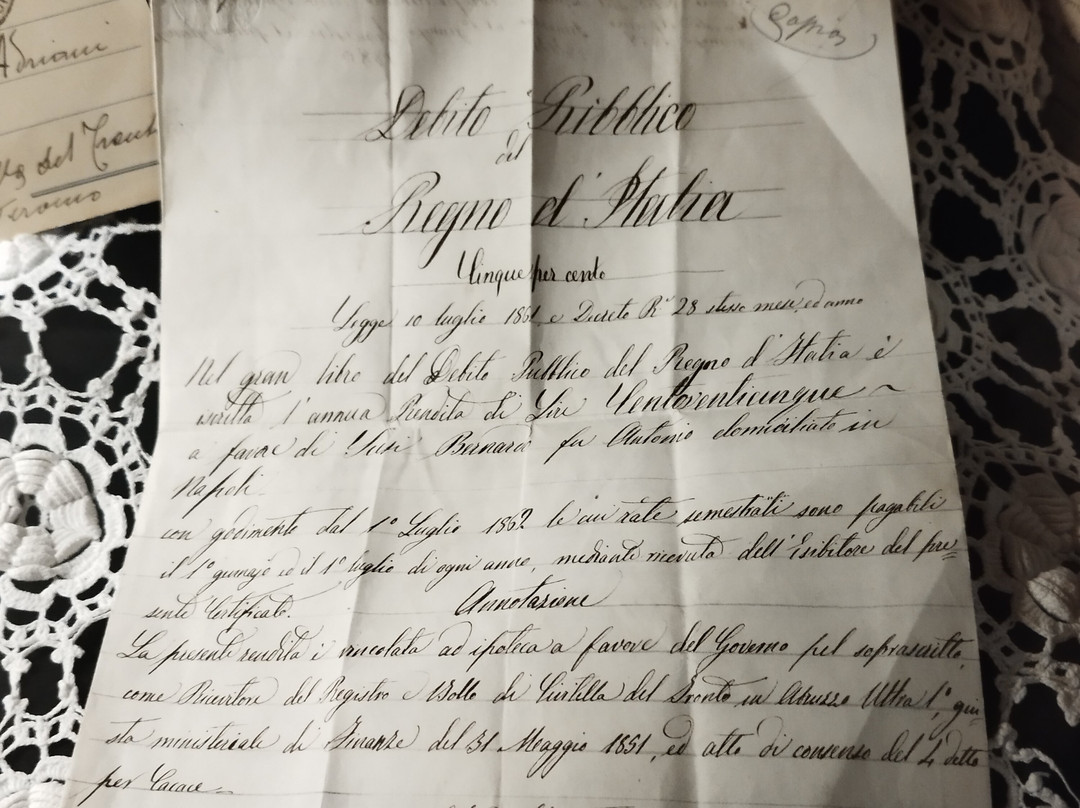 Adriani
del Tront
Teramo
Copia
Debito Pubblico
del
Regno d'Italia
Cinque per cento
Legge 10 luglio 1861 e Decreto R.° 28 stesso mese, ed anno
Nel gran libro del Debito Pubblico del Regno d'Italia è
iscritta l'annua Rendita di Lire Centoventicinque ~
a favore di Bernardo fu Antonio domiciliato in
Napoli
con godimento dal 1° Luglio 1862 le cui rate semestrali sono pagabili
il 1° gennajo ed il 1° luglio di ogni anno, mediante ricevuta dell'Esibitore del pre=
sente Certificato.
Annotazione
La presente rendita è vincolata ad ipoteca a favore del Governo pel soprascritto,
come Ricevitore del Registro e Bollo di Civitella del Tronto in Abruzzo Ultra 1°, giu=
sta ministeriale di Finanze del 31 Maggio 1851, ed atto di consenso del 4 detto
per Cacace